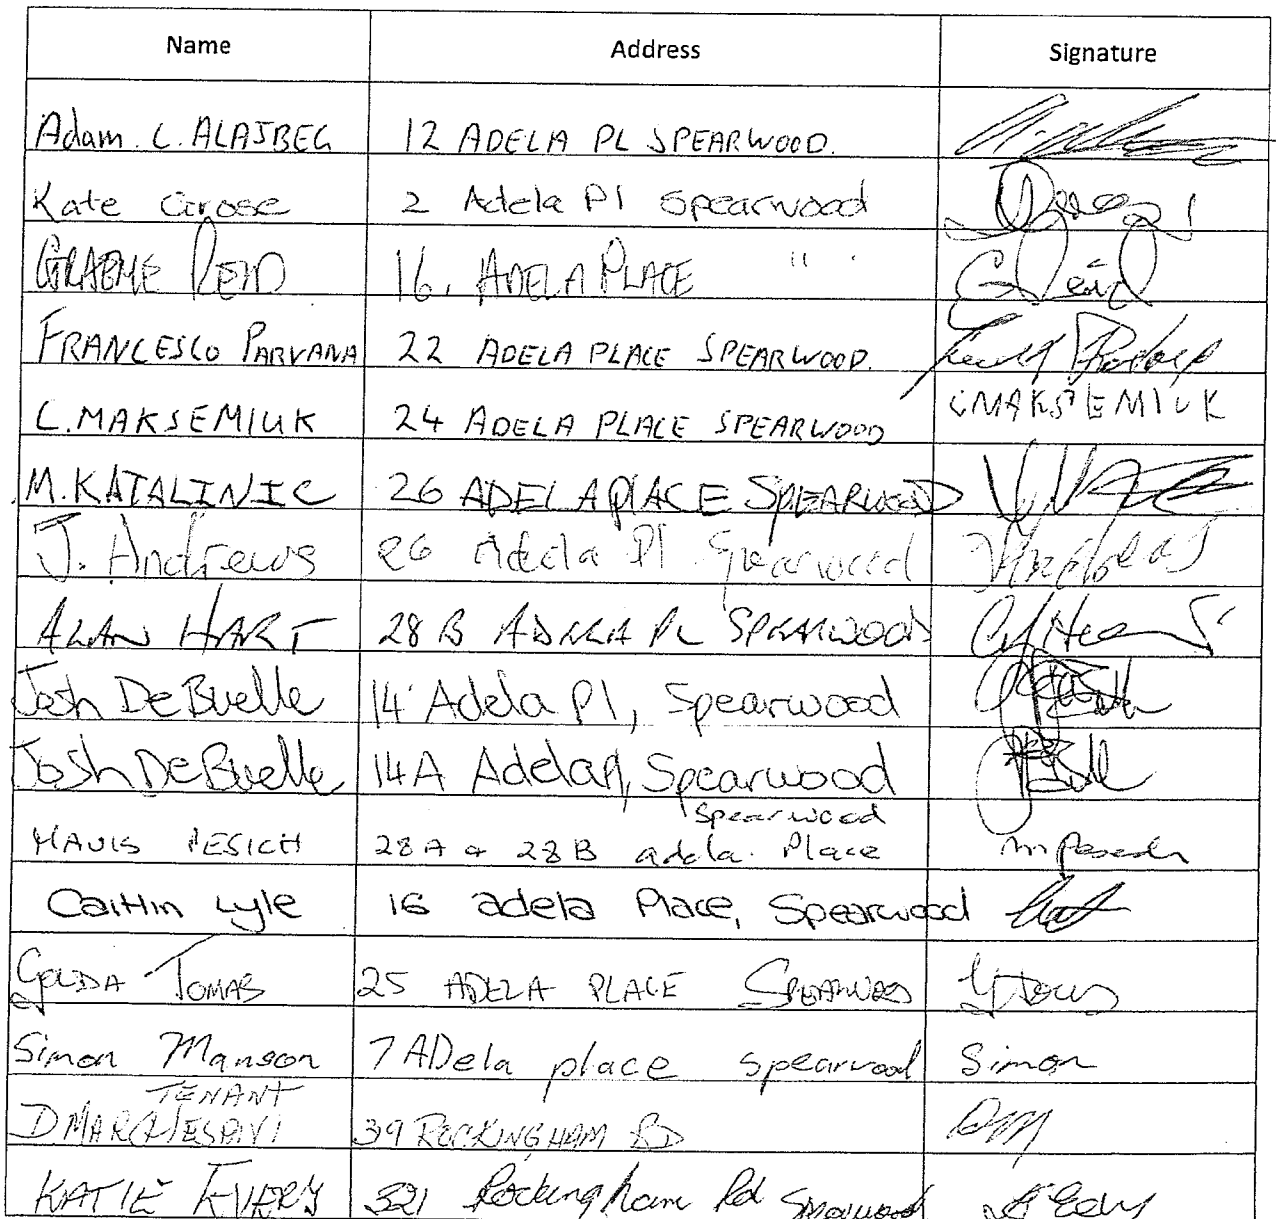 Name Address Signature
Adam. C. ALAJBEG 12 ADELA PL SPEARWOOD.
Kate Grose 2 Adela Pl Spearwood
GRAEME REID 16, ADELA PLACE " "
FRANCESCO PARVANA 22 ADELA PLACE SPEARWOOD.
C. MAKSEMIUK 24 ADELA PLACE SPEARWOOD CMAKSEMIUK
M. KATALINIC 26 ADELA PLACE SPEARWOOD
J. Andrews 26 Adela Pl Spearwood
ALAN HART 28 B ADELA PL SPEARWOOD
Josh DeBuelle 14 Adela Pl, Spearwood
Josh DeBuelle 14A Adela Pl, Spearwood
Spearwood
MAVIS PESICH 28A & 28B adela. Place
Caitlin Lyle 16 adela Place, Spearwood
TOMAS 25 ADELA PLACE SPEARWOOD
Simon Manson 7 ADela place spearwood Simon
TENANT
D 39 ROCKINGHAM RD
KATIE Rockingham Rd Spearwood